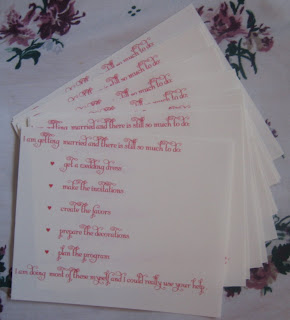 married and there is still so much to do
I am getting married and there is still so much to do
get a wedding dress
make the invitations
create the favors
prepare the decorations
plan the program
I am doing most of these myself and I could really use your help.